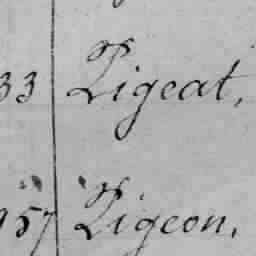 33 Pigeat,
957 Pigeon,